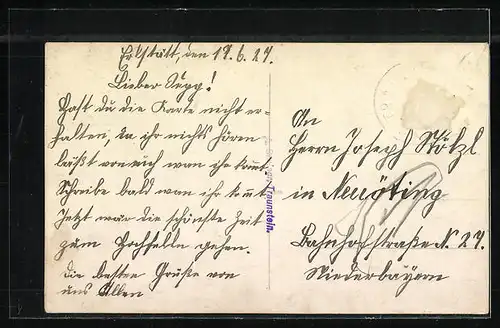 Erlstätt, den 17.6.27.
Lieber Sepp!
Hast du die Karte nicht er-
halten, da ihr nichts hören
läßt von euch wan ihr kommt
Schreibe bald wan ihr kommt
Jetzt wär die schönste Zeit
zum Hochfelln gehen.
die besten Grüße von
uns Allen
Traunstein.
An
Herrn Joseph Stötzl
in Neuötting
Bahnhofstraße N. 27.
Niederbayern